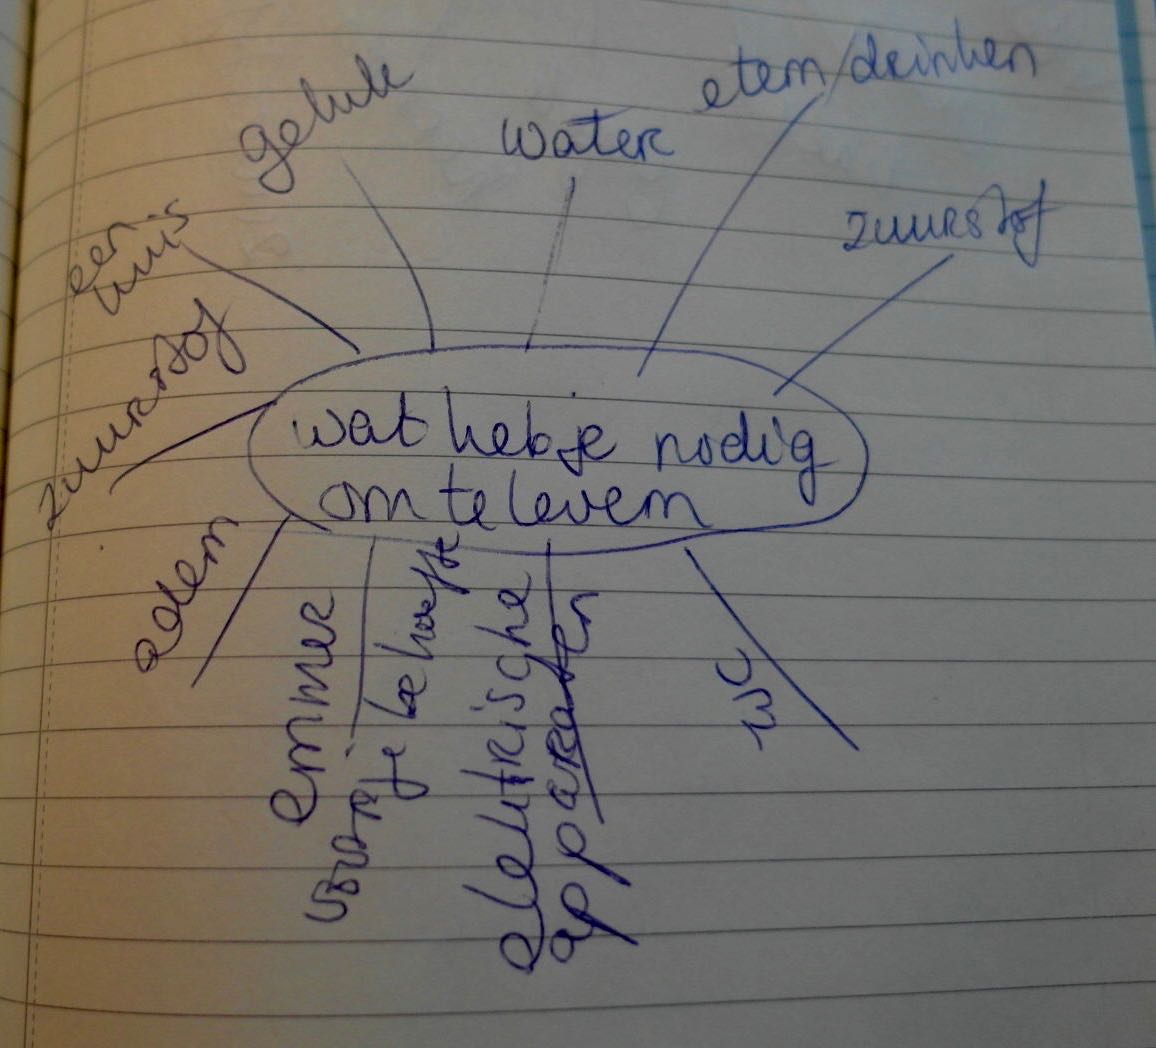 geluk
water
eten/drinken
zuurstof
een
huis
zuurstof
wat heb je nodig
om te leven
adem
emmer
voor je behoefte
elektrische
apparaten
wc